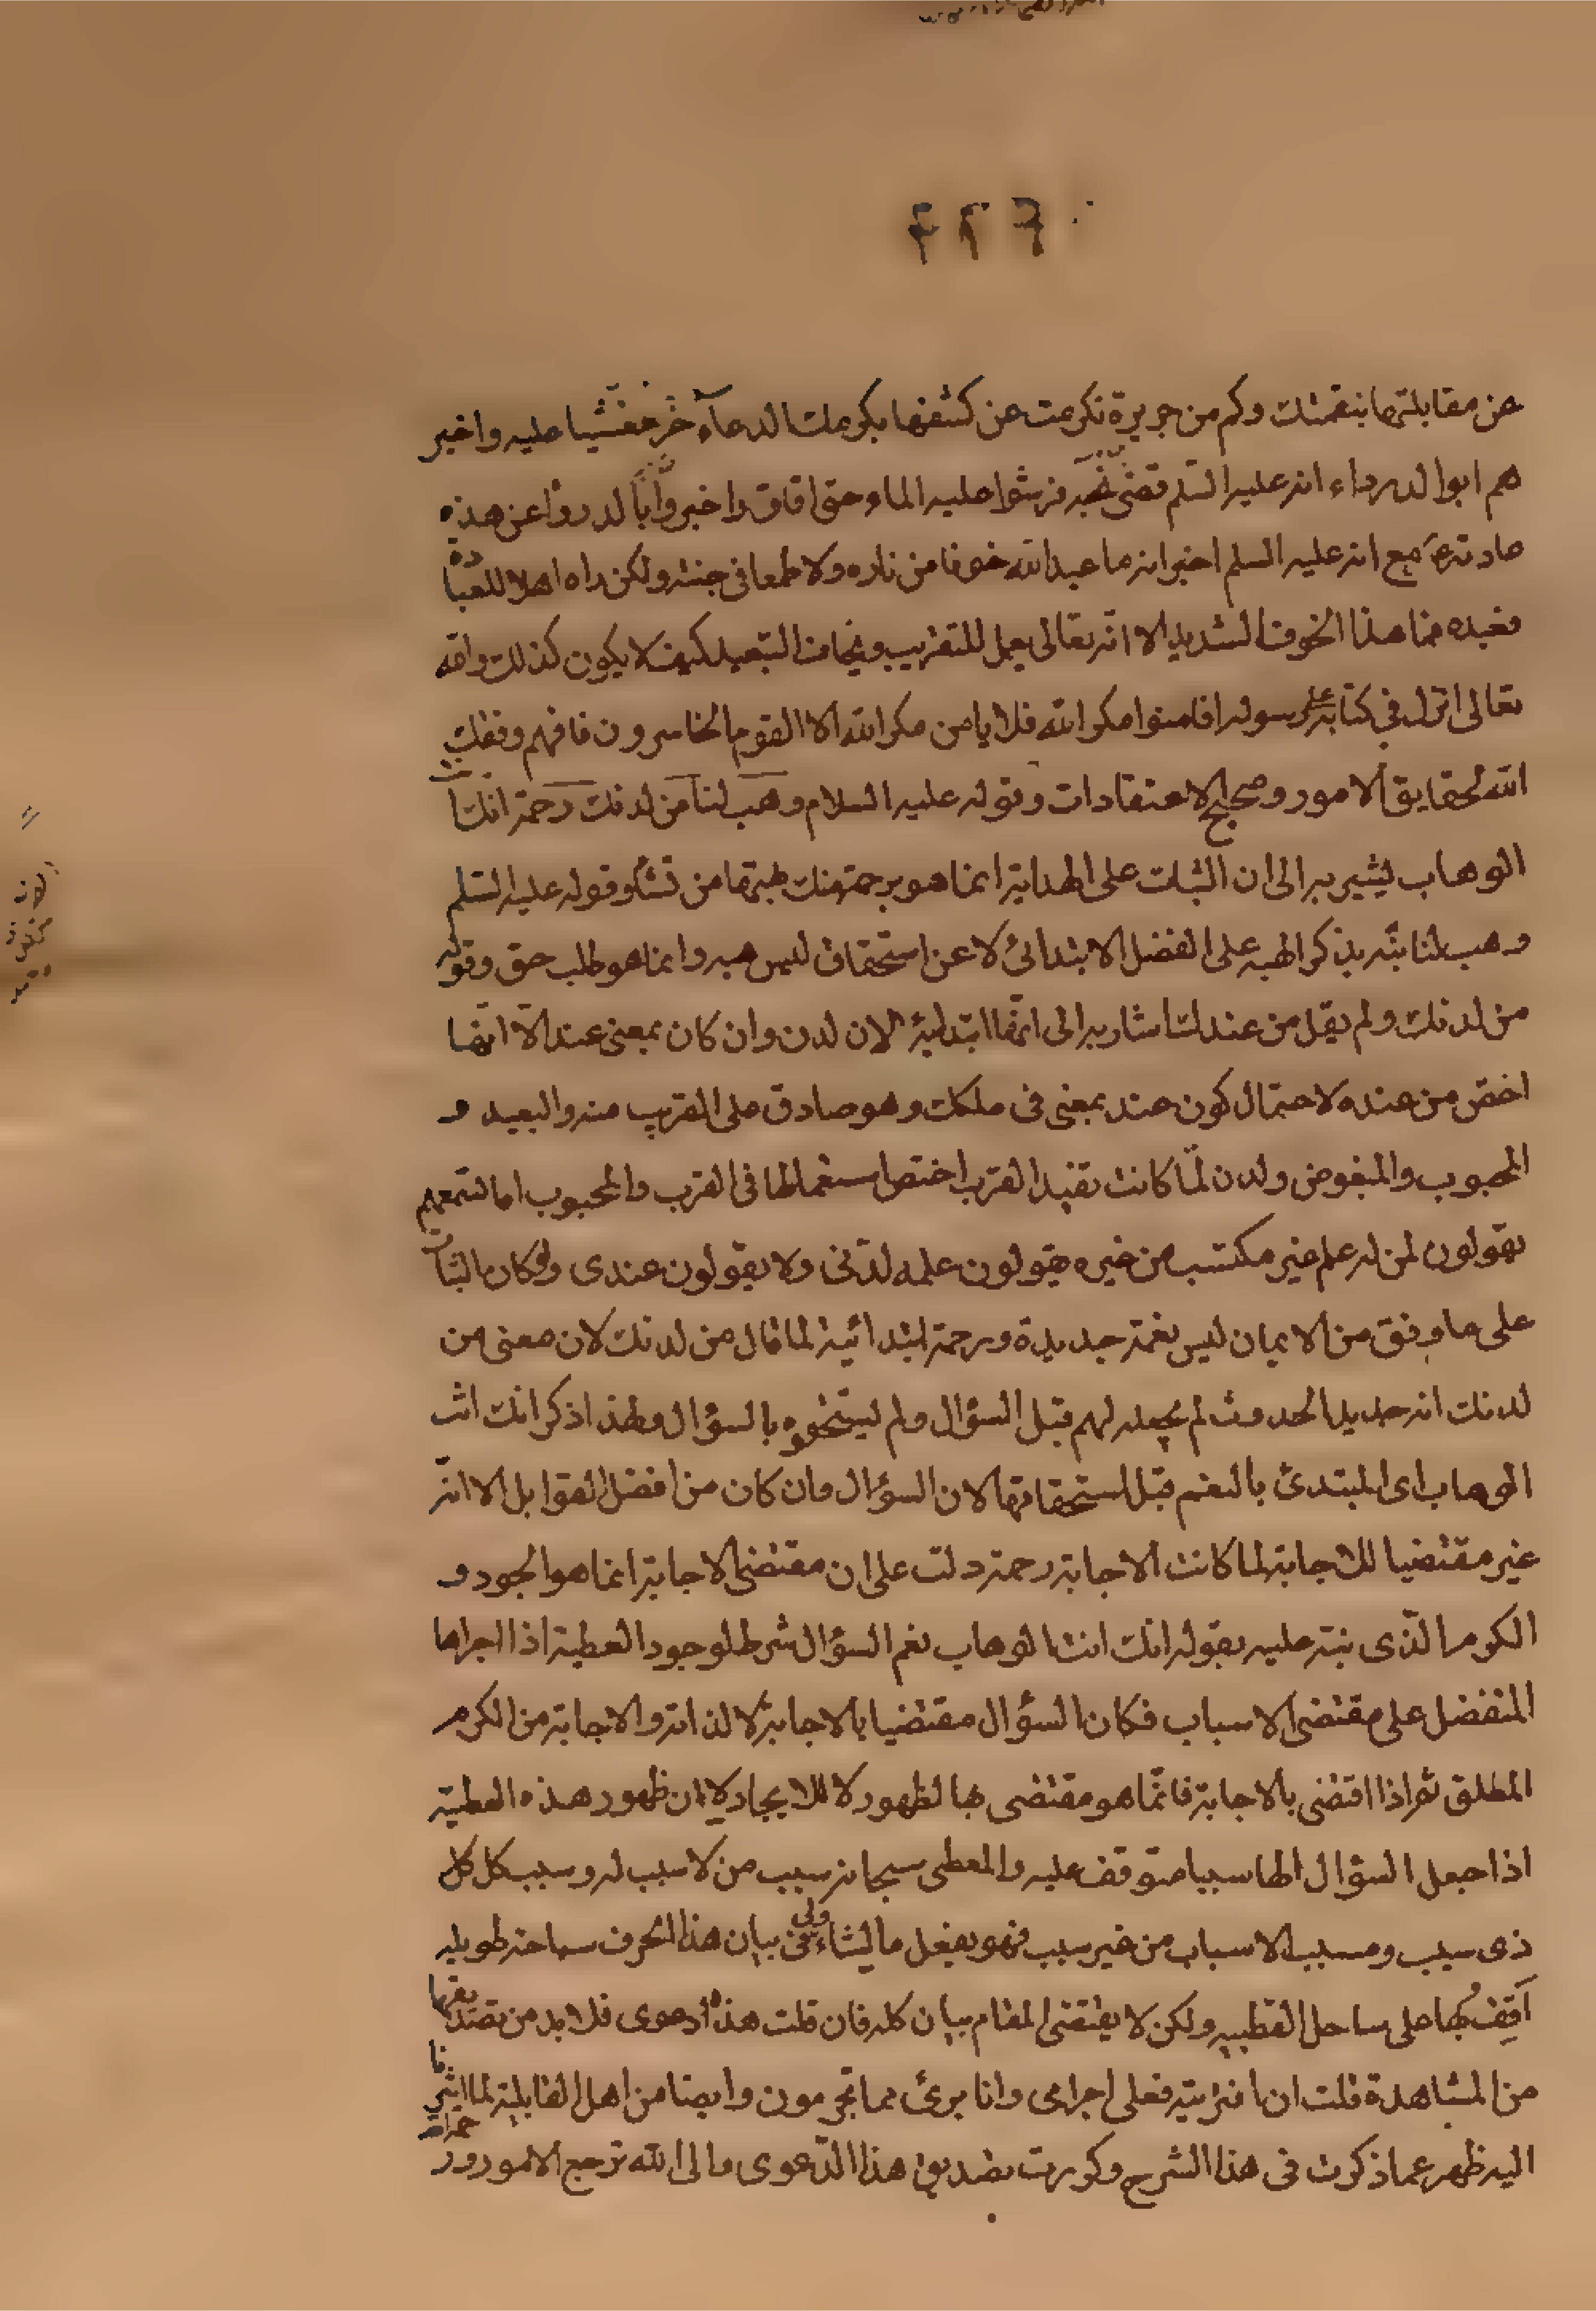 ٤٢٦
عن مقابلتها بنقمتك وكم من جريرة تكرمت عن كشفها بكرمك الدعآء خرّ مغشيا عليه واخبر
هم ابوا الدرداء انه عليه السّلم قضى نحبه فرشوا عليه الماء حتى افاق واخبر وابا الدرداء عن هذه
عادته مع انه عليه السلم اخبر انه ما عبد الله خوفا من ناره ولا طمعا فى جنته ولكن راه اهلا للعبادة
فعبده فما هذا الخوف الشديد الا انّه تعالى يعمل للتقريب ويخاف التبعيد كيف لا يكون كذلك والله
تعالى انزل فى كتابه على رسوله افامنوا مكر الله فلا يامن مكر الله الا القوم الخاسرون فافهم وفقك
الله لحقايق الامور وصحيح الاعتقادات وقوله عليه السلام وهب لنا من لدنك رحمة انك انت
الوهاب يشير به الى ان الثبات على الهداية انما هو برحمة منك تهبها من تشاء وقوله عليه السّلم
وهب لنا ينبّه بذكر الهبه على الفضل الابتدائى لا عن استحقاق ليس هبه وانما هو طلب حق وقوله
من لدنك ولم يقل من عندك اشار به الى انّها ابتدائية لان لدن وان كان بمعنى عند الّا انّها
اخصّ من عنده لاحتمال كون عند بمعنى فى ملكك وهو صادق على القريب منه والبعيد و
المحبوب والمبغوض ولدن لمّا كانت تفيد القرب اختص استعمالها فى القرب والمحبوب اما تسمعهم
يقولون لمن له علم غير مكتسب من غيره يقولون علمه لدنى ولا يقولون عندى ولو كان الثبات
على ما وفق من الايمان ليس نعمة جديدة ورحمة ابتدائية لما قال من لدنك لان معنى من
لدنك انه جديد الحدوث لم يجعله لهم قبل السؤال ولم يستحقوه بالسؤال ولهذا ذكر انك انت
الوهاب اى المبتدئ بالنعم قبل استحقاقها لان السؤال وان كان من افضل القوابل الا انّه
غير مقتضيا للاجابة لما كانت الاجابة رحمة دلت على ان مقتضى الاجابة انما هو الجود و
الكرم الّذى نبّه عليه بقوله انك انت الوهاب نعم السؤال شرط لوجود العطية اذا اجراها
المتفضل على مقتضى الاسباب فكان السؤال مقتضيا بالاجابة لا لذاته والاجابة من الكرم
المطلق ثم اذا اقتضى بالاجابة فانّما هو مقتضى بها لظهور لا للايجاد لان ظهور هذه العطية
اذا جعل السؤال لها سببا متوقف عليه والمعطى سبحانه سبب من لا سبب له وسبب كل كل
ذى سبب ومسبب الاسباب من غير سبب فهو يفعل ما يشاء ولى فى بيان هذا الحرف سباحة طويله
اَقِفُ بها على ساحل القطبيه ولكن لا يقتضى المقام بيان كله فان قلت هذه الدعوى فلا بد من تصديقها
من المشاهدة قلت ان افتريته فعلى اجرامى وانا برئ مما تجرمون وايضا من اهل القابلية لما اشرنا
اليه ظهر عما ذكرت فى هذا الشرح وكررت تصديق هذا الدّعوى والى الله ترجع الامور